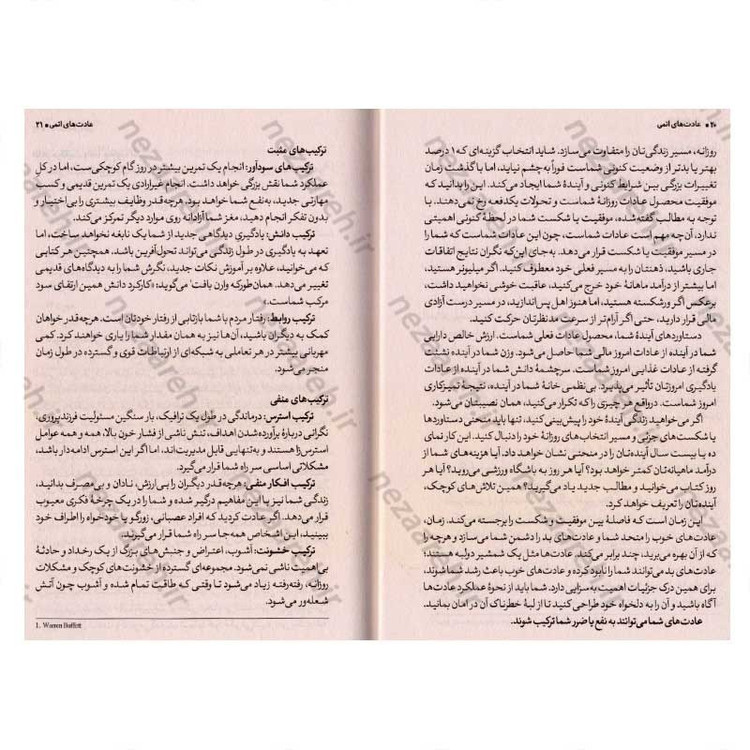 ۲۰ • عادت‌های اتمی
روزانه، مسیر زندگی‌تان را متفاوت می‌سازد. شاید انتخاب گزینه‌ای که ۱ درصد
بهتر یا بدتر از وضعیت کنونی شماست فوراً به‌چشم نیاید، اما با گذشت زمان
تغییرات بزرگی بین شرایط کنونی و آیندهٔ شما ایجاد می‌کند. این را بدانید که
موفقیت محصول عادات روزانهٔ شماست و تحولات یک‌دفعه رخ نمی‌دهند. با
توجه به مطالب گفته‌شده، موفقیت یا شکست شما در لحظهٔ کنونی اهمیتی
ندارد، آن‌چه مهم است عادات شماست، چون این عادات شماست که شما را
در مسیر موفقیت یا شکست قرار می‌دهد. به‌جای این‌که نگران نتایج اتفاقات
جاری باشید، ذهنتان را به مسیر فعلی خود معطوف کنید. اگر میلیونر هستید،
اما بیشتر از درآمد ماهانهٔ خود خرج می‌کنید، عاقبت خوشی نخواهید داشت.
برعکس اگر ورشکسته هستید، اما هنوز اهل پس‌اندازید، در مسیر درست آزادی
مالی قرار دارید، حتی اگر آرام‌تر از سرعت مدنظرتان حرکت کنید.
دستاوردهای آیندهٔ شما، محصول عادات فعلی شماست. ارزش خالص دارایی
شما در آینده از عادات امروز مالی شما حاصل می‌شود. وزن شما در آینده نشئت
گرفته از عادات غذایی امروز شماست. سرچشمهٔ دانش شما در آینده از عادات
یادگیری امروزتان تأثیر می‌پذیرد. بی‌نظمی خانهٔ شما در آینده، نتیجهٔ تمیزکاری
امروز شماست. درواقع هر چیزی را که تکرار می‌کنید، همان نصیبتان می‌شود.
اگر می‌خواهید زندگی آیندهٔ خود را پیش‌بینی کنید، تنها باید منحنی دستاوردها
یا شکست‌های جزئی و مسیر انتخاب‌های روزانهٔ خود را دنبال کنید. این کار نمای
ده یا بیست سال آینده‌تان را در منحنی نشان خواهد داد. آیا هزینه‌های شما از
درآمد ماهیانه‌تان کمتر خواهد بود؟ آیا هر روز به باشگاه ورزشی می‌روید؟ آیا هر
روز کتاب می‌خوانید و مطالب جدید یاد می‌گیرید؟ همین تلاش‌های کوچک،
آینده‌تان را تعریف خواهد کرد.
این زمان است که فاصلهٔ بین موفقیت و شکست را برجسته می‌کند. زمان،
عادت‌های خوب را متحد شما و عادت‌های بد را دشمن شما می‌سازد و هرچه را
که از آن بهره می‌برید، چند برابر می‌کند. عادت‌ها مثل یک شمشیر دولبه هستند؛
عادت‌های بد می‌توانند شما را نابود کرده و عادت‌های خوب باعث رشد شما شوند،
برای همین درک جزئیات اهمیت به‌سزایی دارد. شما باید از نحوهٔ عملکرد عادت‌ها
آگاه باشید و آن را به دلخواه خود طراحی کنید تا از لبهٔ خطرناک آن در امان بمانید.
عادت‌های شما می‌توانند به نفع یا ضرر شما ترکیب شوند.
عادت‌های اتمی • ۲۱
ترکیب‌های مثبت
ترکیب‌های سودآور: انجام یک تمرین بیشتر در روز گام کوچکی‌ست، اما در کل
عملکرد شما نقش بزرگی خواهد داشت. انجام غیرارادی یک تمرین قدیمی و کسب
مهارتی جدید، به‌نفع شما خواهد بود. هرچه‌قدر وظایف بیشتری را بی‌اختیار و
بدون تفکر انجام دهید، مغز شما آزادانه روی موارد دیگر تمرکز می‌کند.
ترکیب دانش: یادگیری دیدگاهی جدید از شما یک نابغه نخواهد ساخت، اما
تعهد به یادگیری در طول زندگی می‌تواند تحول‌آفرین باشد. همچنین هر کتابی
که می‌خوانید، علاوه بر آموزش نکات جدید، نگرش شما را به دیدگاه‌های قدیمی
تغییر می‌دهد. همان‌طورکه وارن بافت۱ می‌گوید: «کارکرد دانش همین ارتقای سود
مرکب شماست.»
ترکیب روابط: رفتار مردم با شما بازتابی از رفتار خودتان است. هرچه‌قدر خواهان
کمک به دیگران باشید، آن‌ها نیز به همان مقدار شما را یاری خواهند کرد. کمی
مهربانی بیشتر در هر تعاملی به شبکه‌ای از ارتباطات قوی و گسترده در طول زمان
منجر می‌شود.
ترکیب‌های منفی
ترکیب استرس: درماندگی در طول یک ترافیک، بار سنگین مسئولیت فرزندپروری،
نگرانی دربارهٔ برآورده‌شدن اهداف، تنش ناشی از فشار خون بالا، همه و همه عوامل
استرس‌زا هستند و به‌تنهایی قابل مدیریت‌اند، اما اگر این استرس ادامه‌دار باشد،
مشکلاتی اساسی سر راه شما قرار می‌گیرد.
ترکیب افکار منفی: هرچه‌قدر دیگران را بی‌ارزش، نادان و بی‌مصرف بدانید،
زندگی شما نیز با این مفاهیم درگیر شده و شما را در یک چرخهٔ فکری معیوب
قرار می‌دهد. اگر عادت کردید که افراد عصبانی، زورگو یا خودخواه را اطراف خود
ببینید، این اشخاص همه‌جا سر راه شما قرار می‌گیرند.
ترکیب خشونت: آشوب، اعتراض و جنبش‌های بزرگ از یک رخداد و حادثهٔ
بی‌اهمیت ناشی نمی‌شود. مجموعه‌ای گسترده از خشونت‌های کوچک و مشکلات
روزانه، رفته‌رفته زیاد می‌شود تا وقتی که طاقت تمام شده و آشوب چون آتش
شعله‌ور می‌شود.
1. Warren Buffett
nezaareh.ir